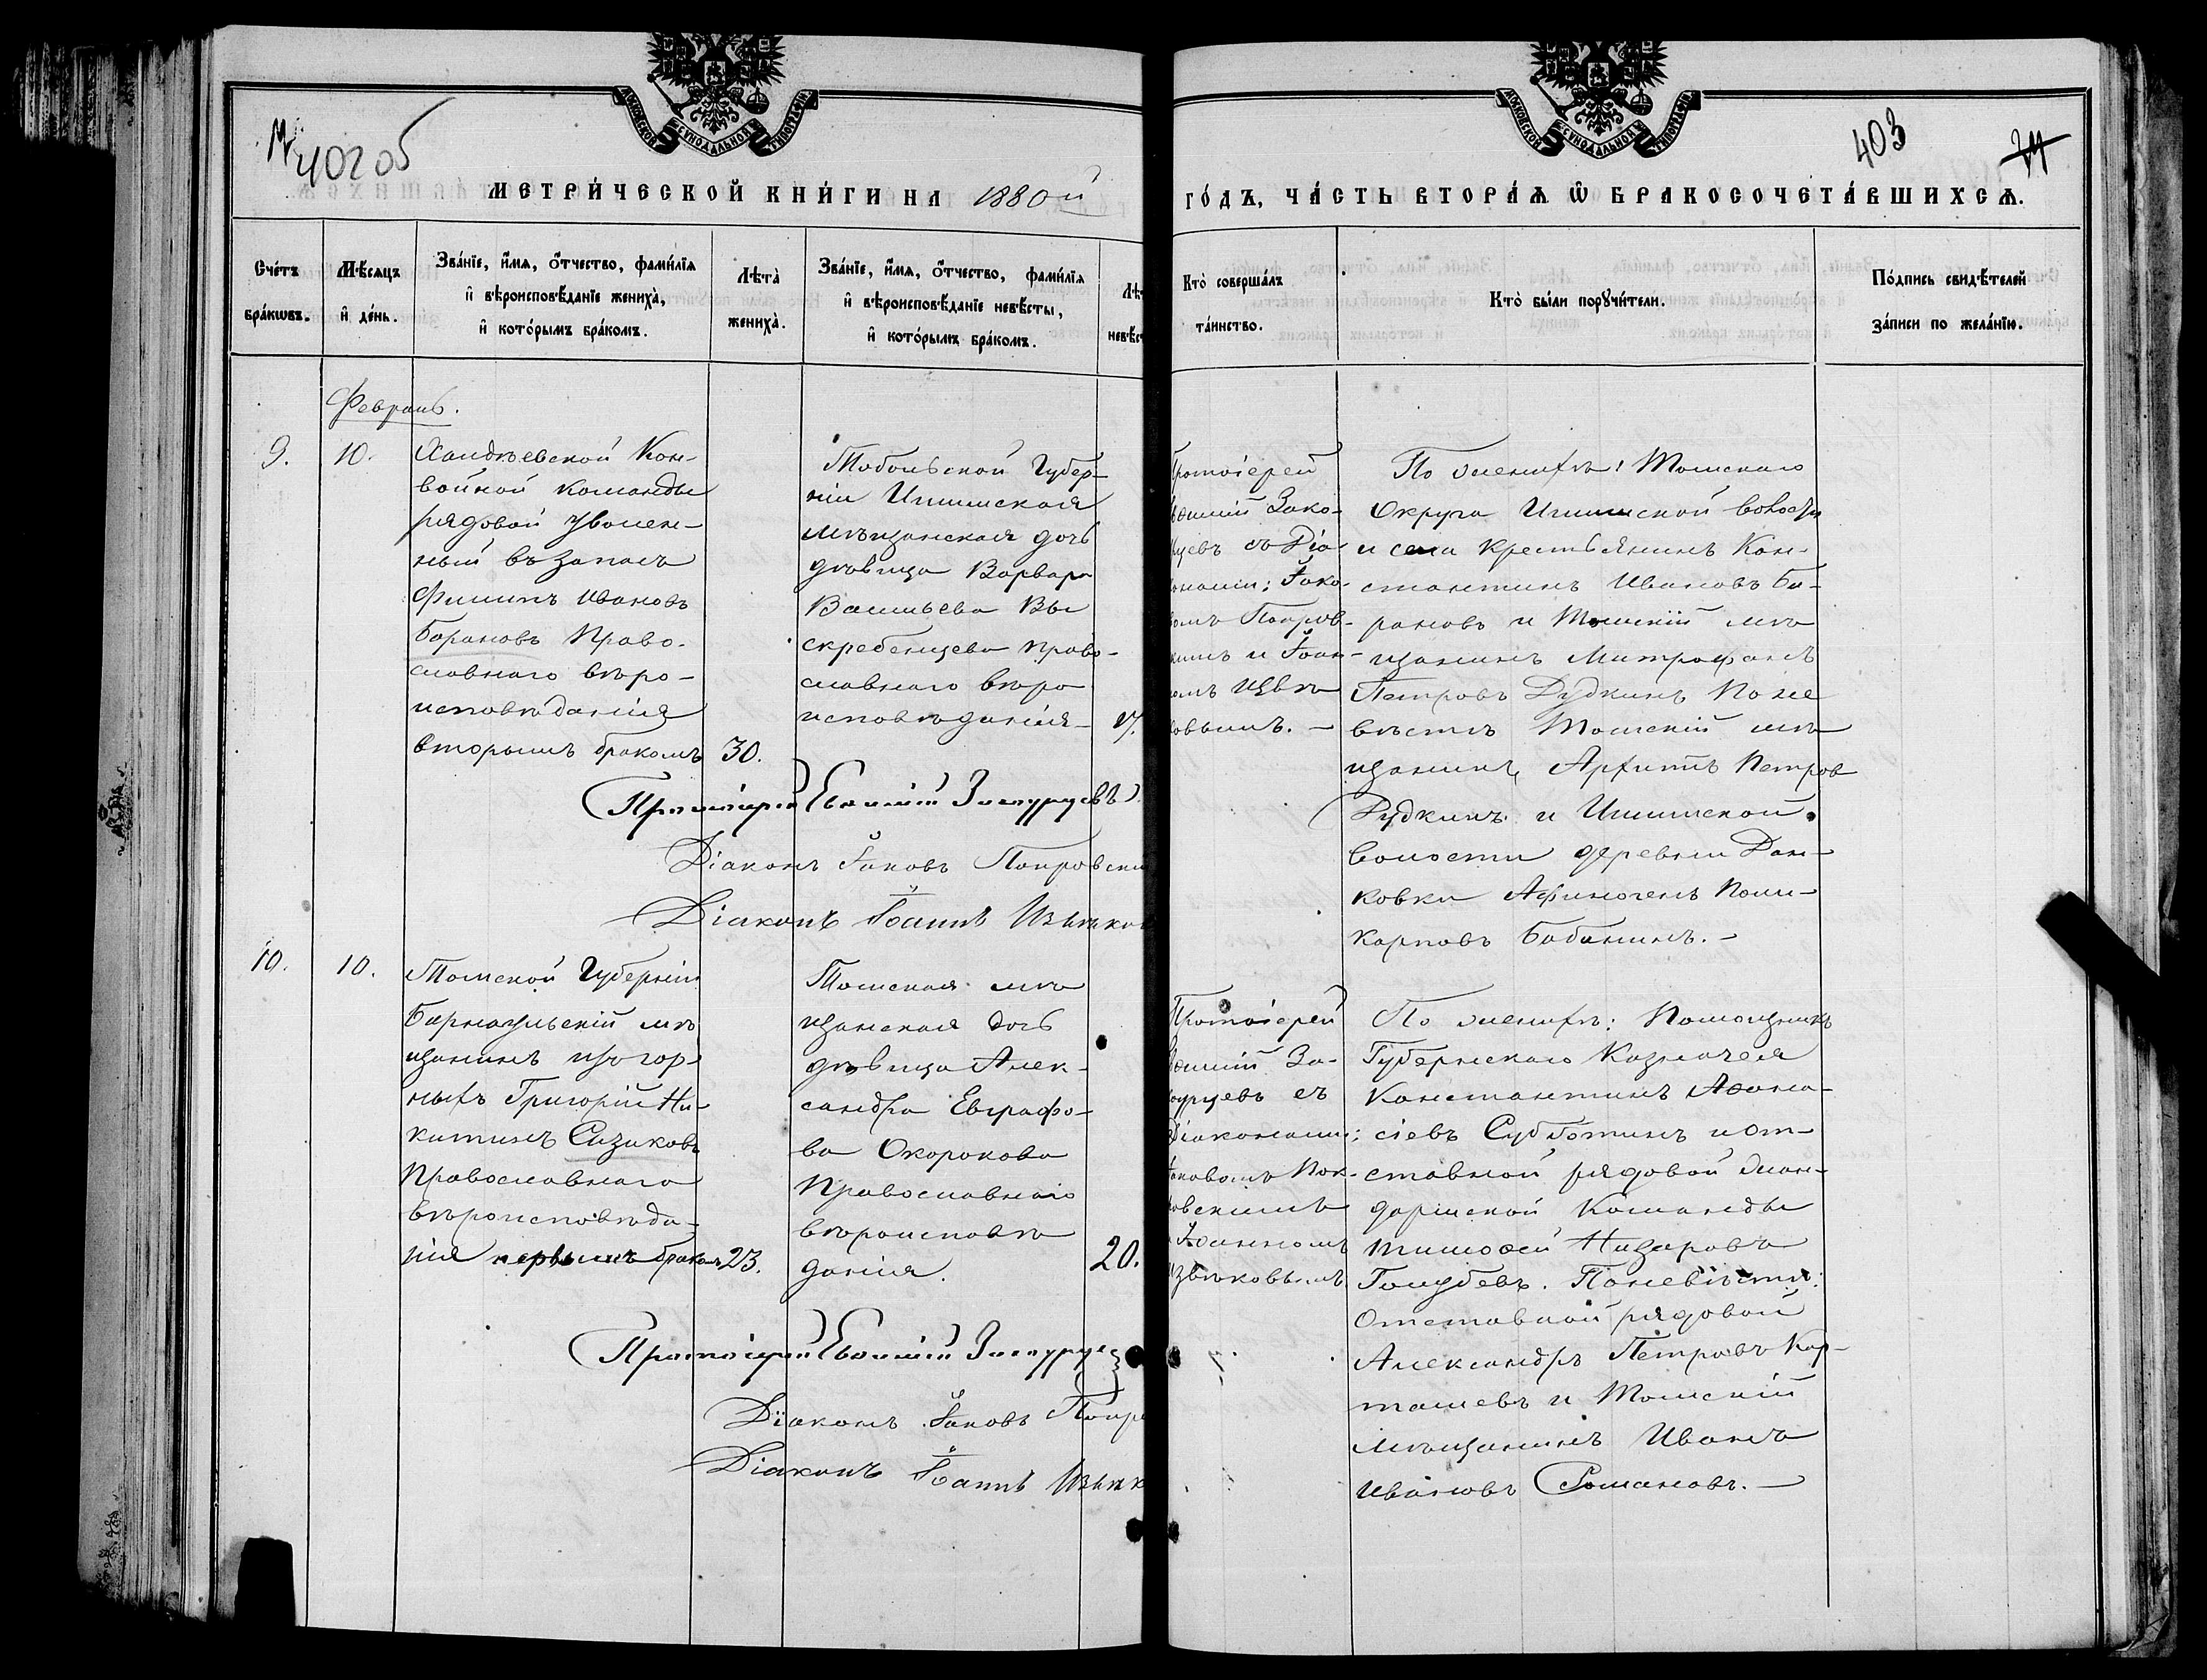 402 об
403
МОСКОВСКОЙ СѴНОДАЛЬНОЙ ТИПОГРАФІИ
МОСКОВСКОЙ СѴНОДАЛЬНОЙ ТИПОГРАФІИ
МЕТРИ́ЧЕСКОЙ КНИ́ГИ НА 1880й
ГО́ДЪ, ЧА́СТЬ ВТОРА́Ѧ Ѿ БРАКОСОЧЕТА́ВШИХСѦ.
Сче́тъ
бра́кѡвъ.
Мѣ́сяцъ
и҆ де́нь.
Зва́нїе, и҆́мѧ, о҆́тчество, фами́лїѧ
и҆ вѣроисповѣ́данїе жениха̀,
и҆ кото́рымъ бра́комъ.
Лѣта̀
жениха̀.
Зва́нїе, и҆́мѧ, о҆́тчество, фами́лїѧ
и҆ вѣроисповѣ́данїе невѣ́сты,
и҆ кото́рымъ бра́комъ.
Лѣт
невѣс
Кто̀ соверша́лъ
та́инство.
Кто̀ бы́ли порꙋчи́тели.
По́дпись свидѣ́телей
за́писи по жела́нїю.
Февраль.
9.
10.
Халдѣевской Кон-
войной команды
рядовой уволен-
ный въ запасъ
Филипъ Ивановъ
Барановъ Право-
славнаго вѣро-
исповѣданія
вторымъ бракомъ
30.
Тобольской Губер-
ніи Ишимская
мѣщанская дочь
дѣвица Варвара
Васильева Вы
скребенцева право-
славнаго вѣро
исповѣданія
17.
Протоіерей
вфимій Зако-
уцевъ съ Діа-
онами: Іако-
омъ Покров-
кимъ и Іоан-
омъ Извѣ
овымъ. —
По женихѣ: Томскаго
Округа Ишимской волости
и села крестьянинъ Кон-
стантинъ Ивановъ Ба-
рановъ и Томскій мѣ
щанинъ Митрофанъ
Петровъ Дудкинъ По не
вѣстѣ Томскій мѣ
щанинъ Архипъ Петров
Дудкинъ и Ишимской
волости деревни Дан-
ковки Афиногенъ Поли-
карповъ Бабанинъ. —
Протоіерей Евфимій Закоурцевъ
Діаконъ Іаковъ Покровски
Діаконъ Іоаннъ Извѣко
10.
10.
Томской Губерніи
Барнаульскій мѣ
щанинъ изъ гор-
ныхъ Григорій Ни-
китинъ Сизиковъ
Православнаго
вѣроисповѣда-
нія первымъ бракомъ
23.
Томская мѣ
щанская дочь
дѣвица Алек-
сандра Евграфо-
ва Окорокова
Православнаго
вѣроисповѣ
данія.
20.
Протоіерей
вфимій За-
оурцевъ съ
Діаконами:
аковомъ Пок-
овскимъ
Іоанномъ
звѣковымъ
По женихѣ: Помощникъ
Губернскаго Казначея
Константинъ Афана-
сіевъ Субботинъ и от-
ставной рядовой жан-
дармской Команды
Тимофей Назаровъ
Голубевъ. По невѣстѣ:
Отставной рядовой
Александръ Петровъ Кар-
ташевъ и Томскій
мѣщанинъ Иванъ
Ивановъ Романовъ. —
Протоіерей Евфимій Закоурце
Діаконъ Іаковъ Покр
Діаконъ Іоаннъ Извѣк